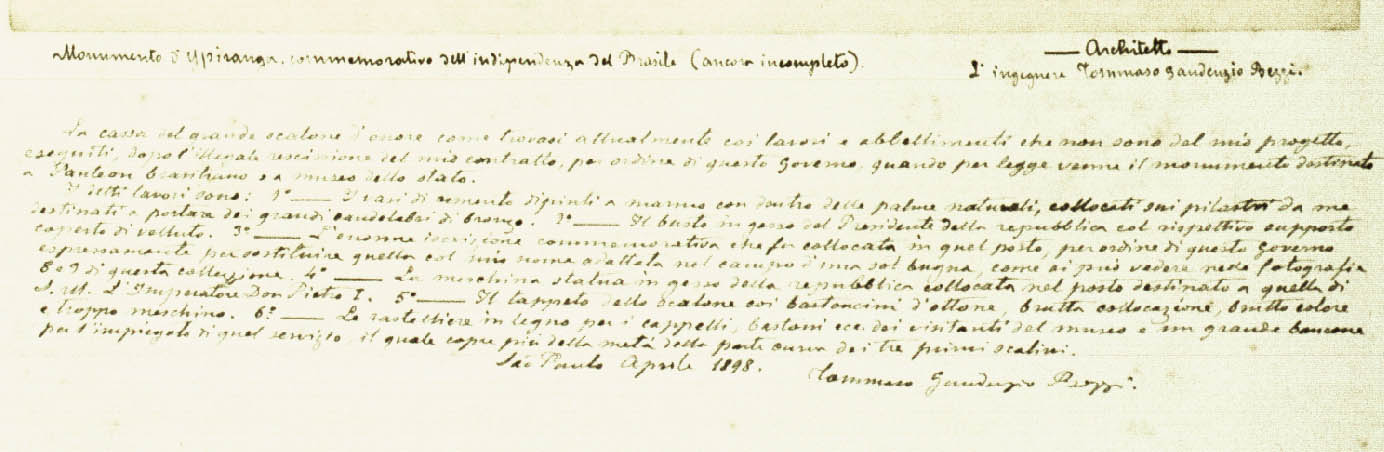 Monumento d'Ypiranga, commemorativo dell'indipendenza del Brasile (ancora incompleto).
— Architetto —
L' ingegnere Tommaso Gaudenzio Bezzi.
La cassa del grande scalone d'onore come trovasi attualmente coi lavori e abbellimenti che non sono del mio progetto,
eseguiti, dopo l'illegale rescissione del mio contratto, per ordine di questo Governo, quando per legge venne il monumento destinato
a Panteon brasiliano e a museo dello stato.
I detti lavori sono: 1º — I vasi di cemento dipinti a marmo con dentro delle palme naturali, collocati sui pilastri da me
destinati a portare dei grandi candelabri di bronzo. 2º — Il busto in gesso del Presidente della repubblica col rispettivo supporto
coperto di velluto. 3º — L'enorme iscrizione commemorativa che fu collocata in quel posto, per ordine di questo Governo
espressamente per sostituire quella col mio nome adattata nel campo d'una sol bugna, come si può vedere nelle fotografie
8 e 9 di questa collezione. 4º — La meschina statua in gesso della repubblica collocata nel posto destinato a quella di
S. M. L'Imperatore Don Pietro I. 5º — Il tappeto dello scalone coi bastoncini d'ottone, brutta collocazione, brutto colore
e troppo meschino. 6º — Le rastelliere in legno per i cappelli, bastoni ecc. dei visitanti del museo e un grande bancone
per l'impiegato di quel servizio il quale copre più della metà della parte curva dei tre primi scalini.
São Paulo Aprile 1898.
Tommaso Gaudenzio Bezzi.